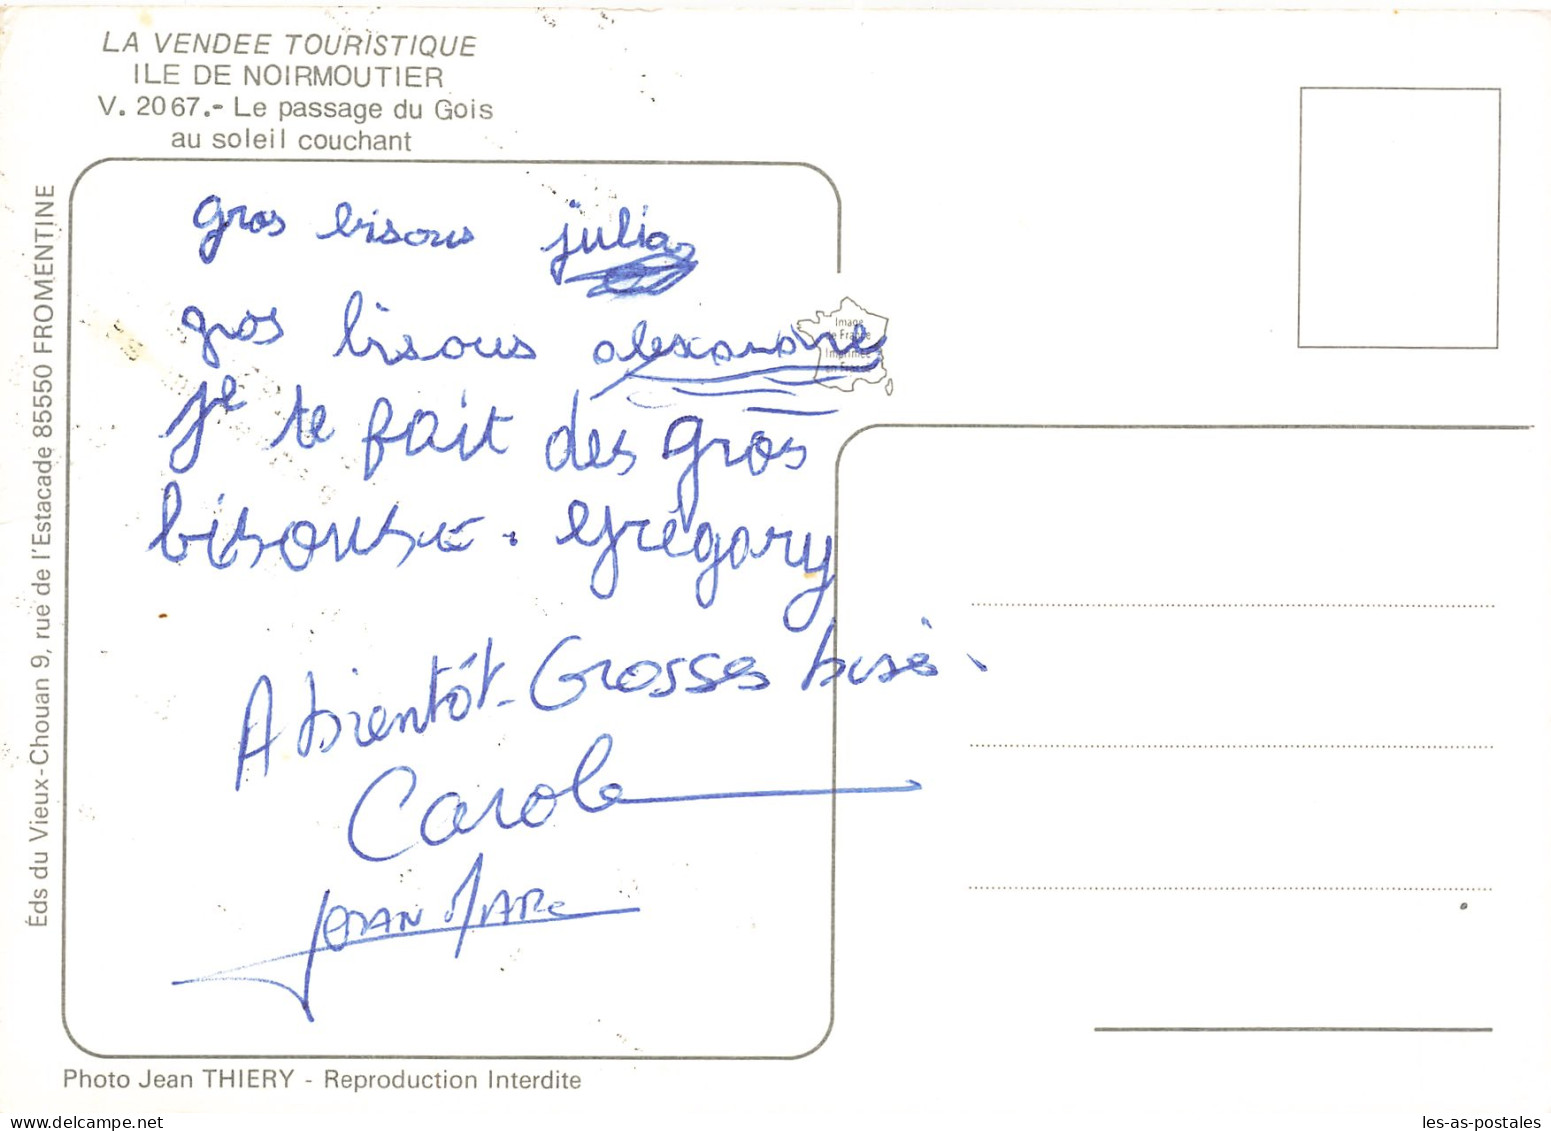 LA VENDEE TOURISTIQUE
ILE DE NOIRMOUTIER
V. 2067.- Le passage du Gois
au soleil couchant
Éds du Vieux-Chouan 9, rue de l'Estacade 85550 FROMENTINE
gros bisous julia
gros bisous alexandre
Image
de France
Imprimée
en France
je te fait des gros
bisous. grégory
A bientôt. Grosses bises.
Carole
JEAN MARC
Photo Jean THIERY - Reproduction Interdite
les-as-postales